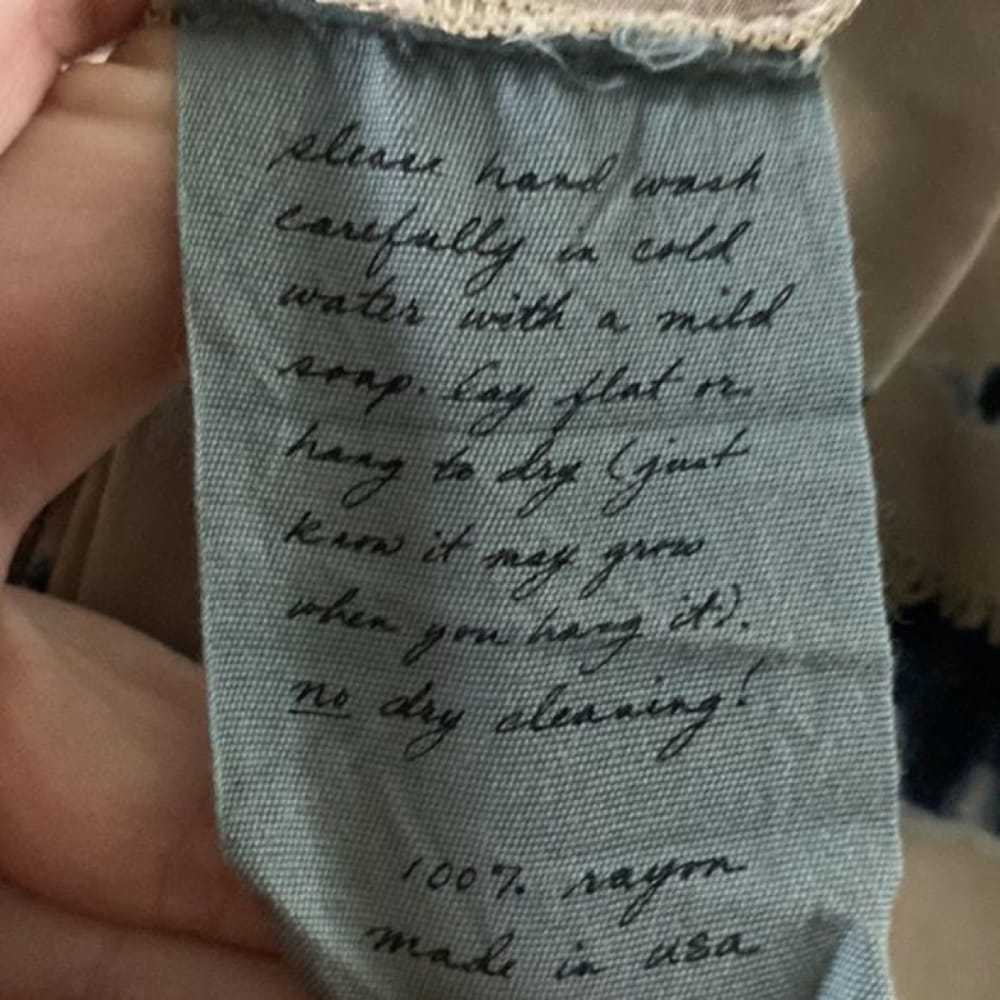 please hand wash
carefully in cold
water with a mild
soap. lay flat or
hang to dry (just
know it may grow
when you hang it).
no dry cleaning!
100% rayon
made in usa